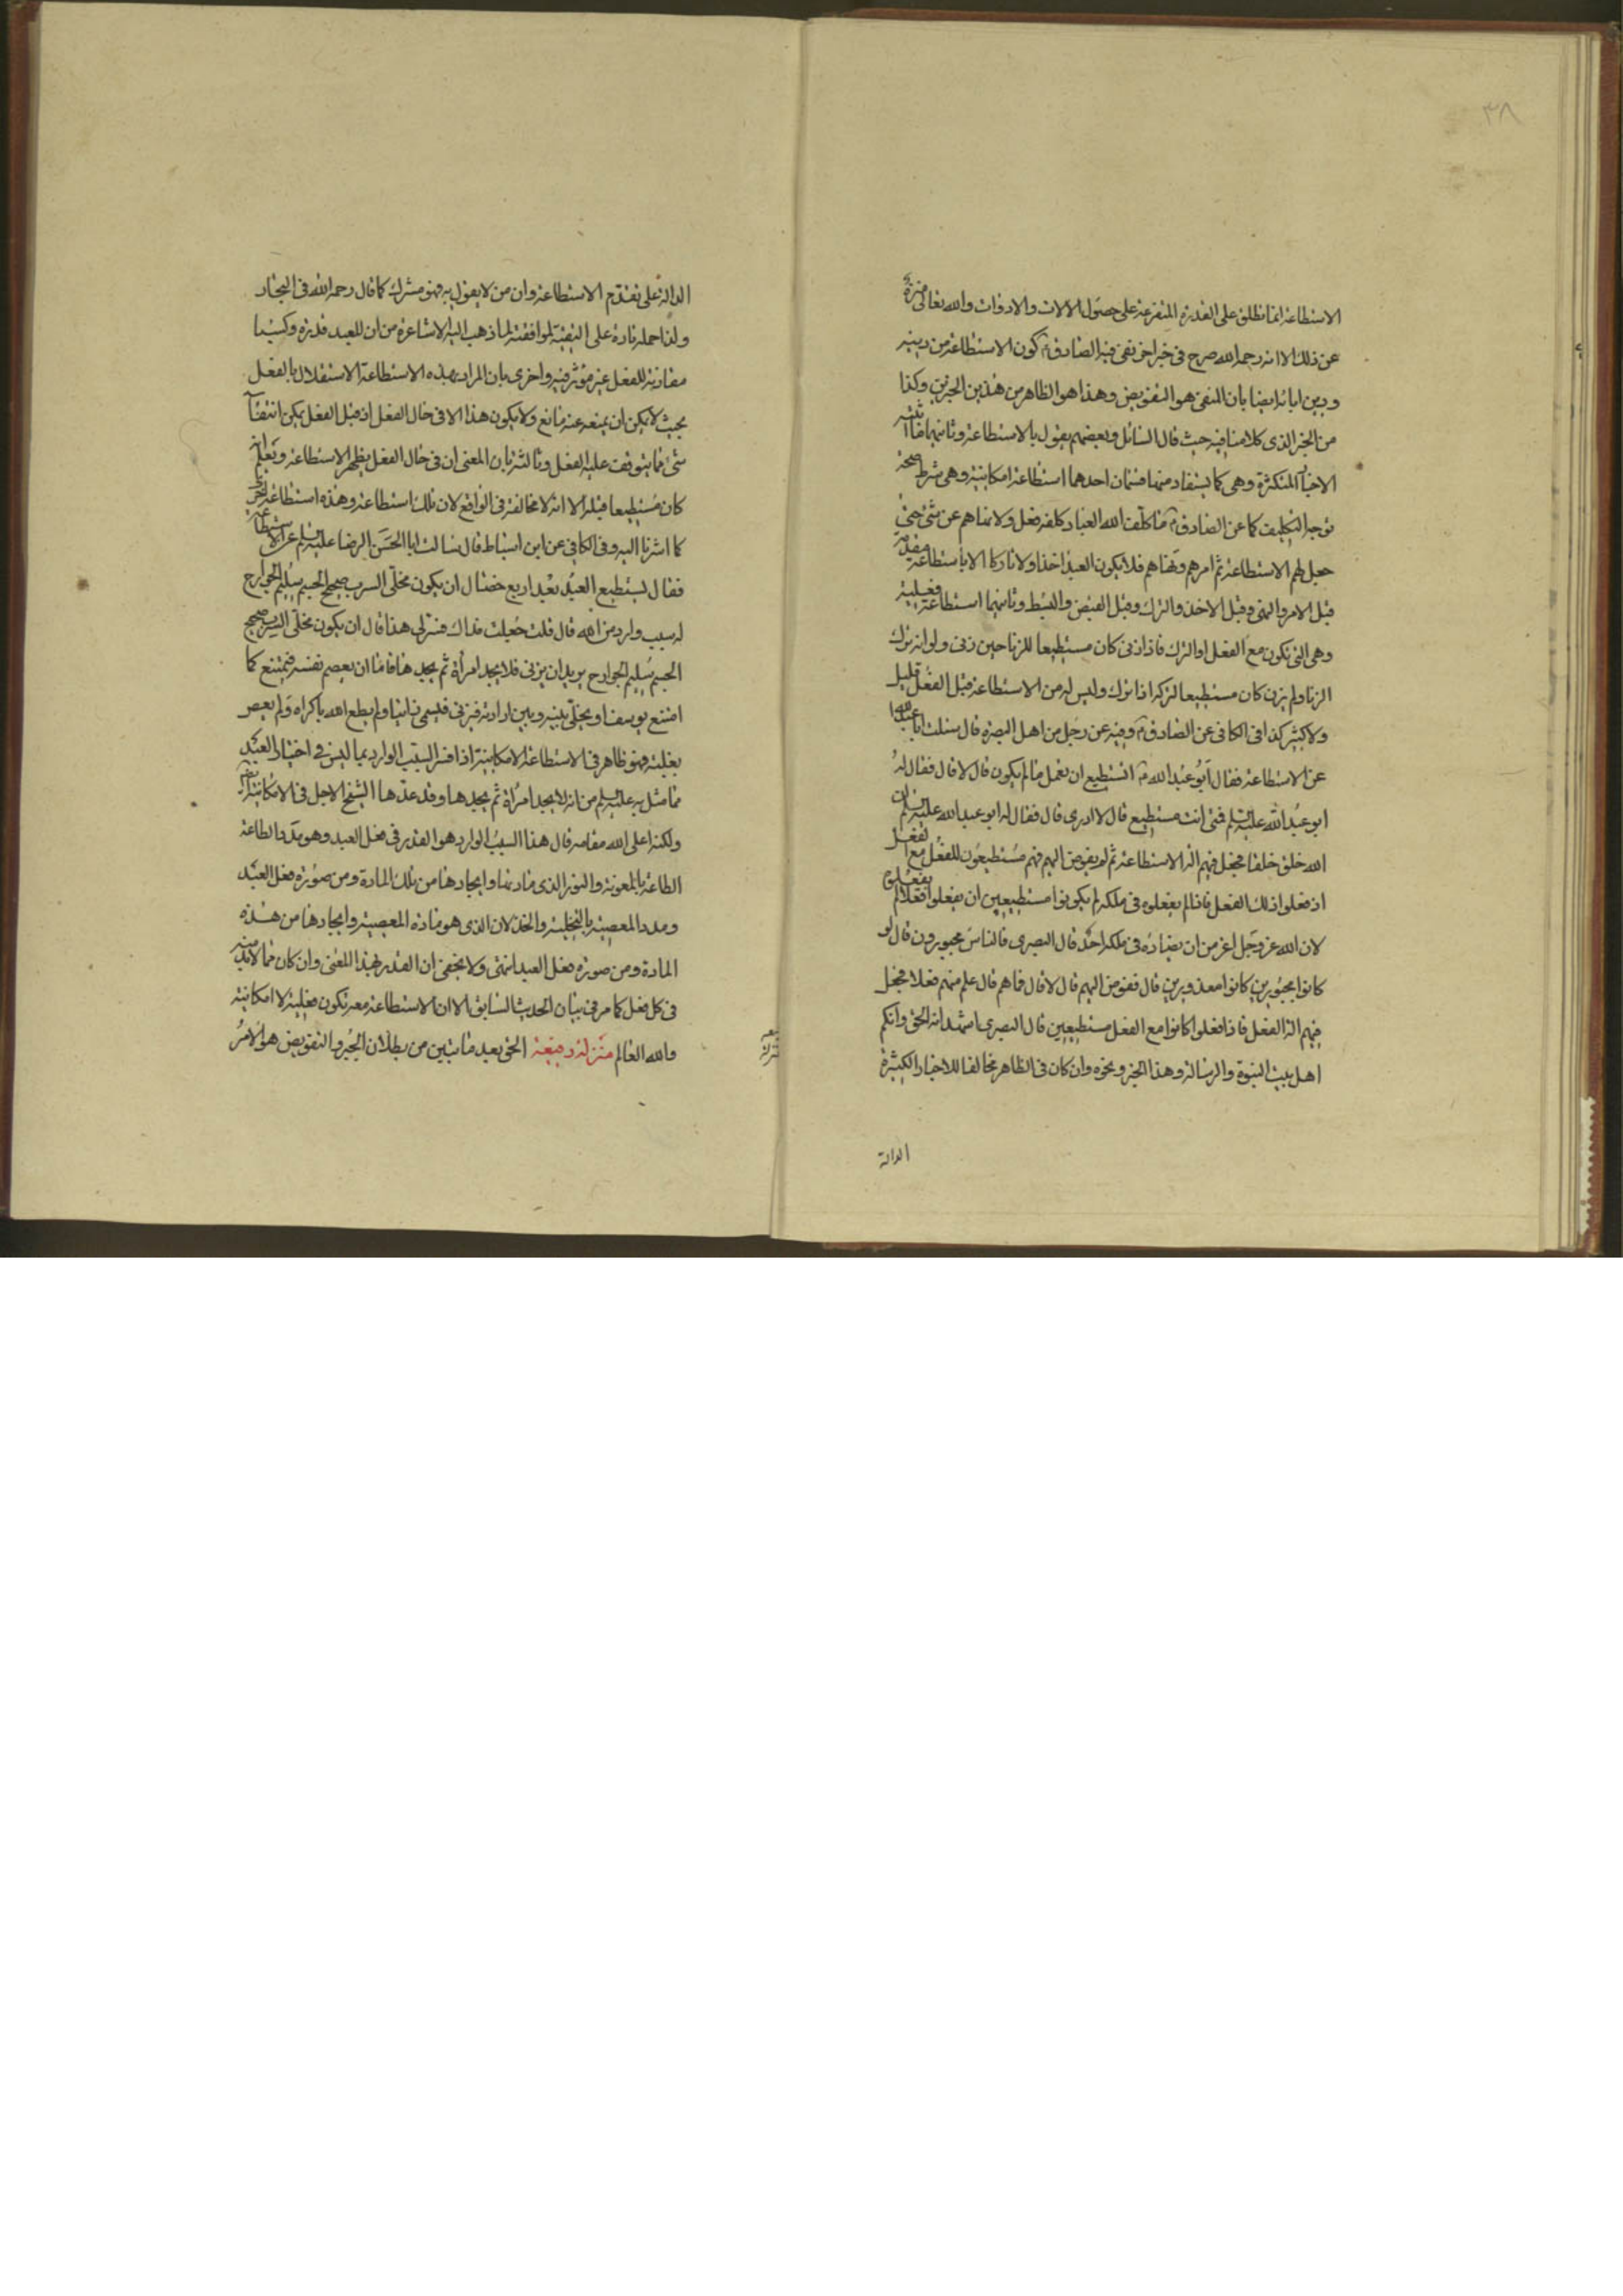 ٣٨
الاستطاعة انما تطلق على القدرة المتفرعة على حصول الالات والادوات والله تعالى منزه
عن ذلك الا انه رحمه الله صرح فى خبر اخر نفى فيه الصادق ؑ كون الاستطاعة من دينه
ودين ابائه ايضا بان النفى هو التفويض وهذا هو الظاهر من هذين الخبرين وكذا
من الخبر الذى كلامنا فيه حيث قال السائل وبعضهم يقول بالاستطاعة وثانيهما ما اثبته
الاخبار المتكثرة وهى كما يستفاد منها قسمان احدهما استطاعة امكانية وهى شرط صحة
توجه التكليف كما عن الصادق ؑ ما كلف الله العباد كلفة فعل ولا نهاهم عن شئ حتى
جعل لهم الاستطاعة ثم امرهم ونهاهم فلا يكون العبد اخذا ولا تاركا الا باستطاعة متقدمة
قبل الامر والنهى وقبل الاخذ والترك وقبل القبض والبسط وثانيهما استطاعة فعلية
وهى التى تكون مع الفعل او الترك فاذا زنى كان مستطيعا للزنا حين زنى ولو انه ترك
الزنا ولم يزن كان مستطيعا لتركه اذا ترك وليس له من الاستطاعة قبل الفعل قليل
ولا كثير كذا فى الكافى عن الصادق ؑ وفيه عن رجل من اهل البصرة قال سئلت ابا عبد الله
عن الاستطاعة فقال ابو عبد الله ؑ اتستطيع ان تعمل ما لم يكون قال لا قال فقال له
ابو عبد الله عليه السلم فمتى انت مستطيع قال لا ادرى قال فقال له ابو عبد الله عليه السلم ان
الله خلق خلقا فجعل فيهم الة الاستطاعة ثم لم يفوض اليهم فهم مستطيعون للفعل مع الفعل
اذ فعلوا ذلك الفعل فاذا لم يفعلوه فى ملكه لم يكونوا مستطيعين ان يفعلوا فعلا لم يفعلوه
لان الله عز وجل اعز من ان يضاده فى ملكه احد قال البصرى فالناس مجبورون قال لو
كانوا مجبورين كانوا معذورين قال ففوض اليهم قال لا قال فما هم قال علم منهم فعلا فجعل
فيهم الة الفعل فاذا فعلوا كانوا مع الفعل مستطيعين قال البصرى اشهد انه الحق وانكم
اهل بيت النبوة والرسالة وهذا الخبر ونحوه وان كان فى الظاهر مخالفا للاخبار الكثيرة
الدالة
الدالة على تقدم الاستطاعة وان من لا يقول به فهو مشرك كما قال رحمه الله فى البحار
ولذا حمله تارة على التقية لموافقته لما ذهب اليه الاشاعرة من ان للعبد قدرة وكسبا
مقارنة للفعل غير مؤثر فيه واخرى بان المراد بهذه الاستطاعة الاستقلال بالفعل
بحيث لا يمكن ان يمنعه عنه مانع ولا يكون هذا الا فى حال الفعل اذ قبل الفعل يمكن انتفاء
شئ مما يتوقف عليه الفعل وثالثة بان المعنى ان فى حال الفعل يظهر الاستطاعة ويعلم انه
كان مستطيعا قبله الا انه لا مخالفة فى الواقع لان تلك استطاعة وهذه استطاعة اخرى
كما اشرنا اليه وفى الكافى عن ابن اسباط قال سالت ابا الحسن الرضا عليه السلم عن الاستطاعة
فقال يستطيع العبد بعد اربع خصال ان يكون مخلى السرب صحيح الجسم سليم الجوارح
له سبب وارد من الله قال قلت جعلت فداك فسر لى هذا قال ان يكون مخلى السرب صحيح
الجسم سليم الجوارح يريد ان يزنى فلا يجد امرأة ثم يجدها فاما ان يعصم نفسه فيمتنع كما
امتنع يوسف او يخلى بينه وبين ارادته فيزنى فيسمى زانيا ولم يطع الله باكراه ولم يعص
بغلبة فهو ظاهر فى الاستطاعة الامكانية اذا فسر السبب الوارد بما ليس فى اختيار العبد
مما مثل به عليه السلم من انه لا يجد امرأة ثم يجدها وقد عدها الشيخ الاجل فى الامكانية
ولكنه اعلى الله مقامه قال هذا السبب الوارد هو القدر فى فعل العبد وهو مدد الطاعة
الطاعة بالمعونة والنور الذى مادتها وايجادها من تلك المادة ومن صورة فعل العبد
ومدد المعصية بالتخلية والخذلان الذى هو مادة المعصية وايجادها من هذه
المادة ومن صورة فعل العبد انتهى ولا يخفى ان القدر بهذا المعنى وان كان مما لابد منه
فى كل فعل كما مر فى بيان الحديث السابق الا ان الاستطاعة معه تكون فعلية لا امكانية
والله العالم منزلة رفيعة الحق بعد ما تبين من بطلان الجبر والتفويض هو الامر